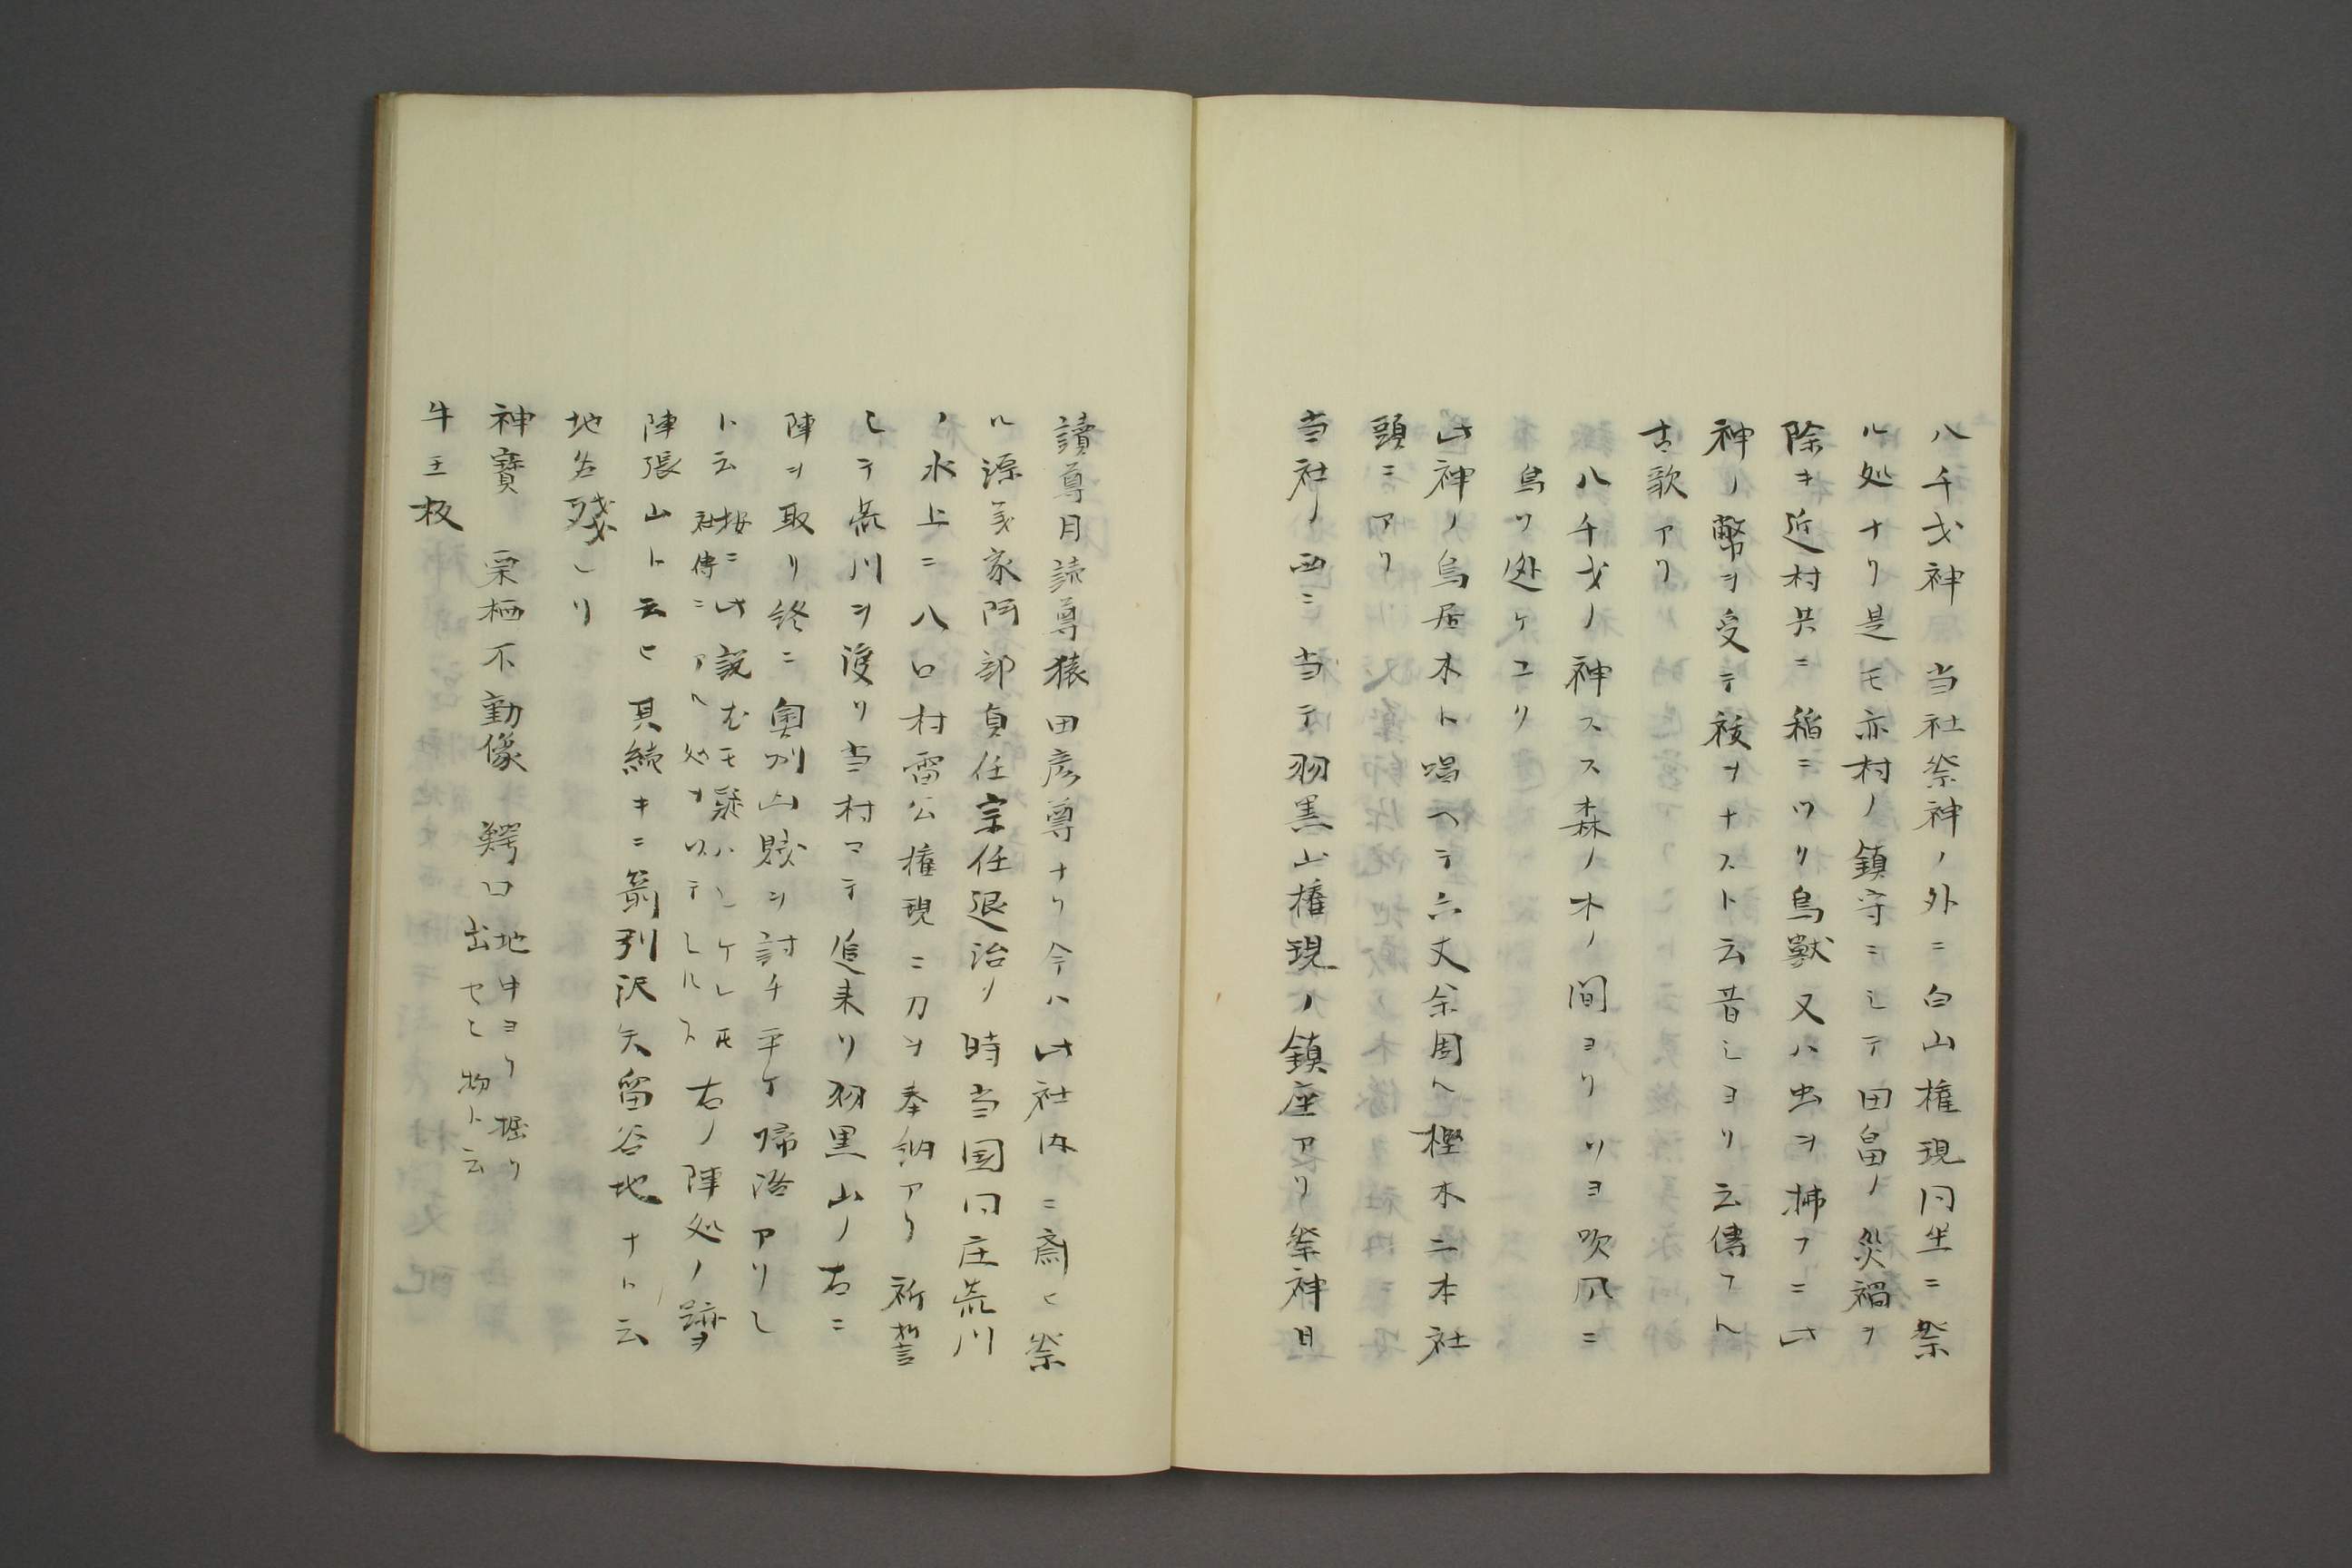 八千戈神 当社祭神ノ外ニ白山権現同坐ニ祭
ル処ナリ是モ亦村ノ鎮守ニシテ田畠ノ災禍ヲ
除キ近村共ニ稲ニツリ鳥獣又ハ虫ヲ拂フニ此
神ノ幣ヲ受テ祓ヲナスト云昔シヨリ云傳フル
古歌アリ
八千戈ノ神スス森ノ木ノ間ヨリソヨ吹风ニ
鳥ソ処ケユリ
此神ノ鳥居木ト唱ヘテ六丈余周ヘ樫木二本社
頭ニアリ
当社ノ西ニ当テ羽黒山権現ノ鎮座アリ祭神日
讀尊月読尊猿田彦尊ナリ今ハ此社内ニ斎ヒ祭
ル源義家阿部貞任宗任退治ノ時当国同庄荒川
ノ水上ニ八口村雷公権現ニ刀ヲ奉納アリ祈誓
シテ荒川ヲ渡リ当村マテ追来リ羽黒山ノ右ニ
陣ヲ取リ終ニ奥州山賊ヲ討チ平ケ帰洛アリシ
ト云 按ニ此説尤モ疑ハシケレ𪜈
社傳ニアル処ヲ以テシルス 右ノ陣処ノ蹟ヲ
陣張山ト云ヒ其続キニ箭引沢矢留谷地ナト云
地名残レリ
神寳 栗栖不動像 鰐口 地中ヨリ掘リ
出セシ物ト云
牛王板